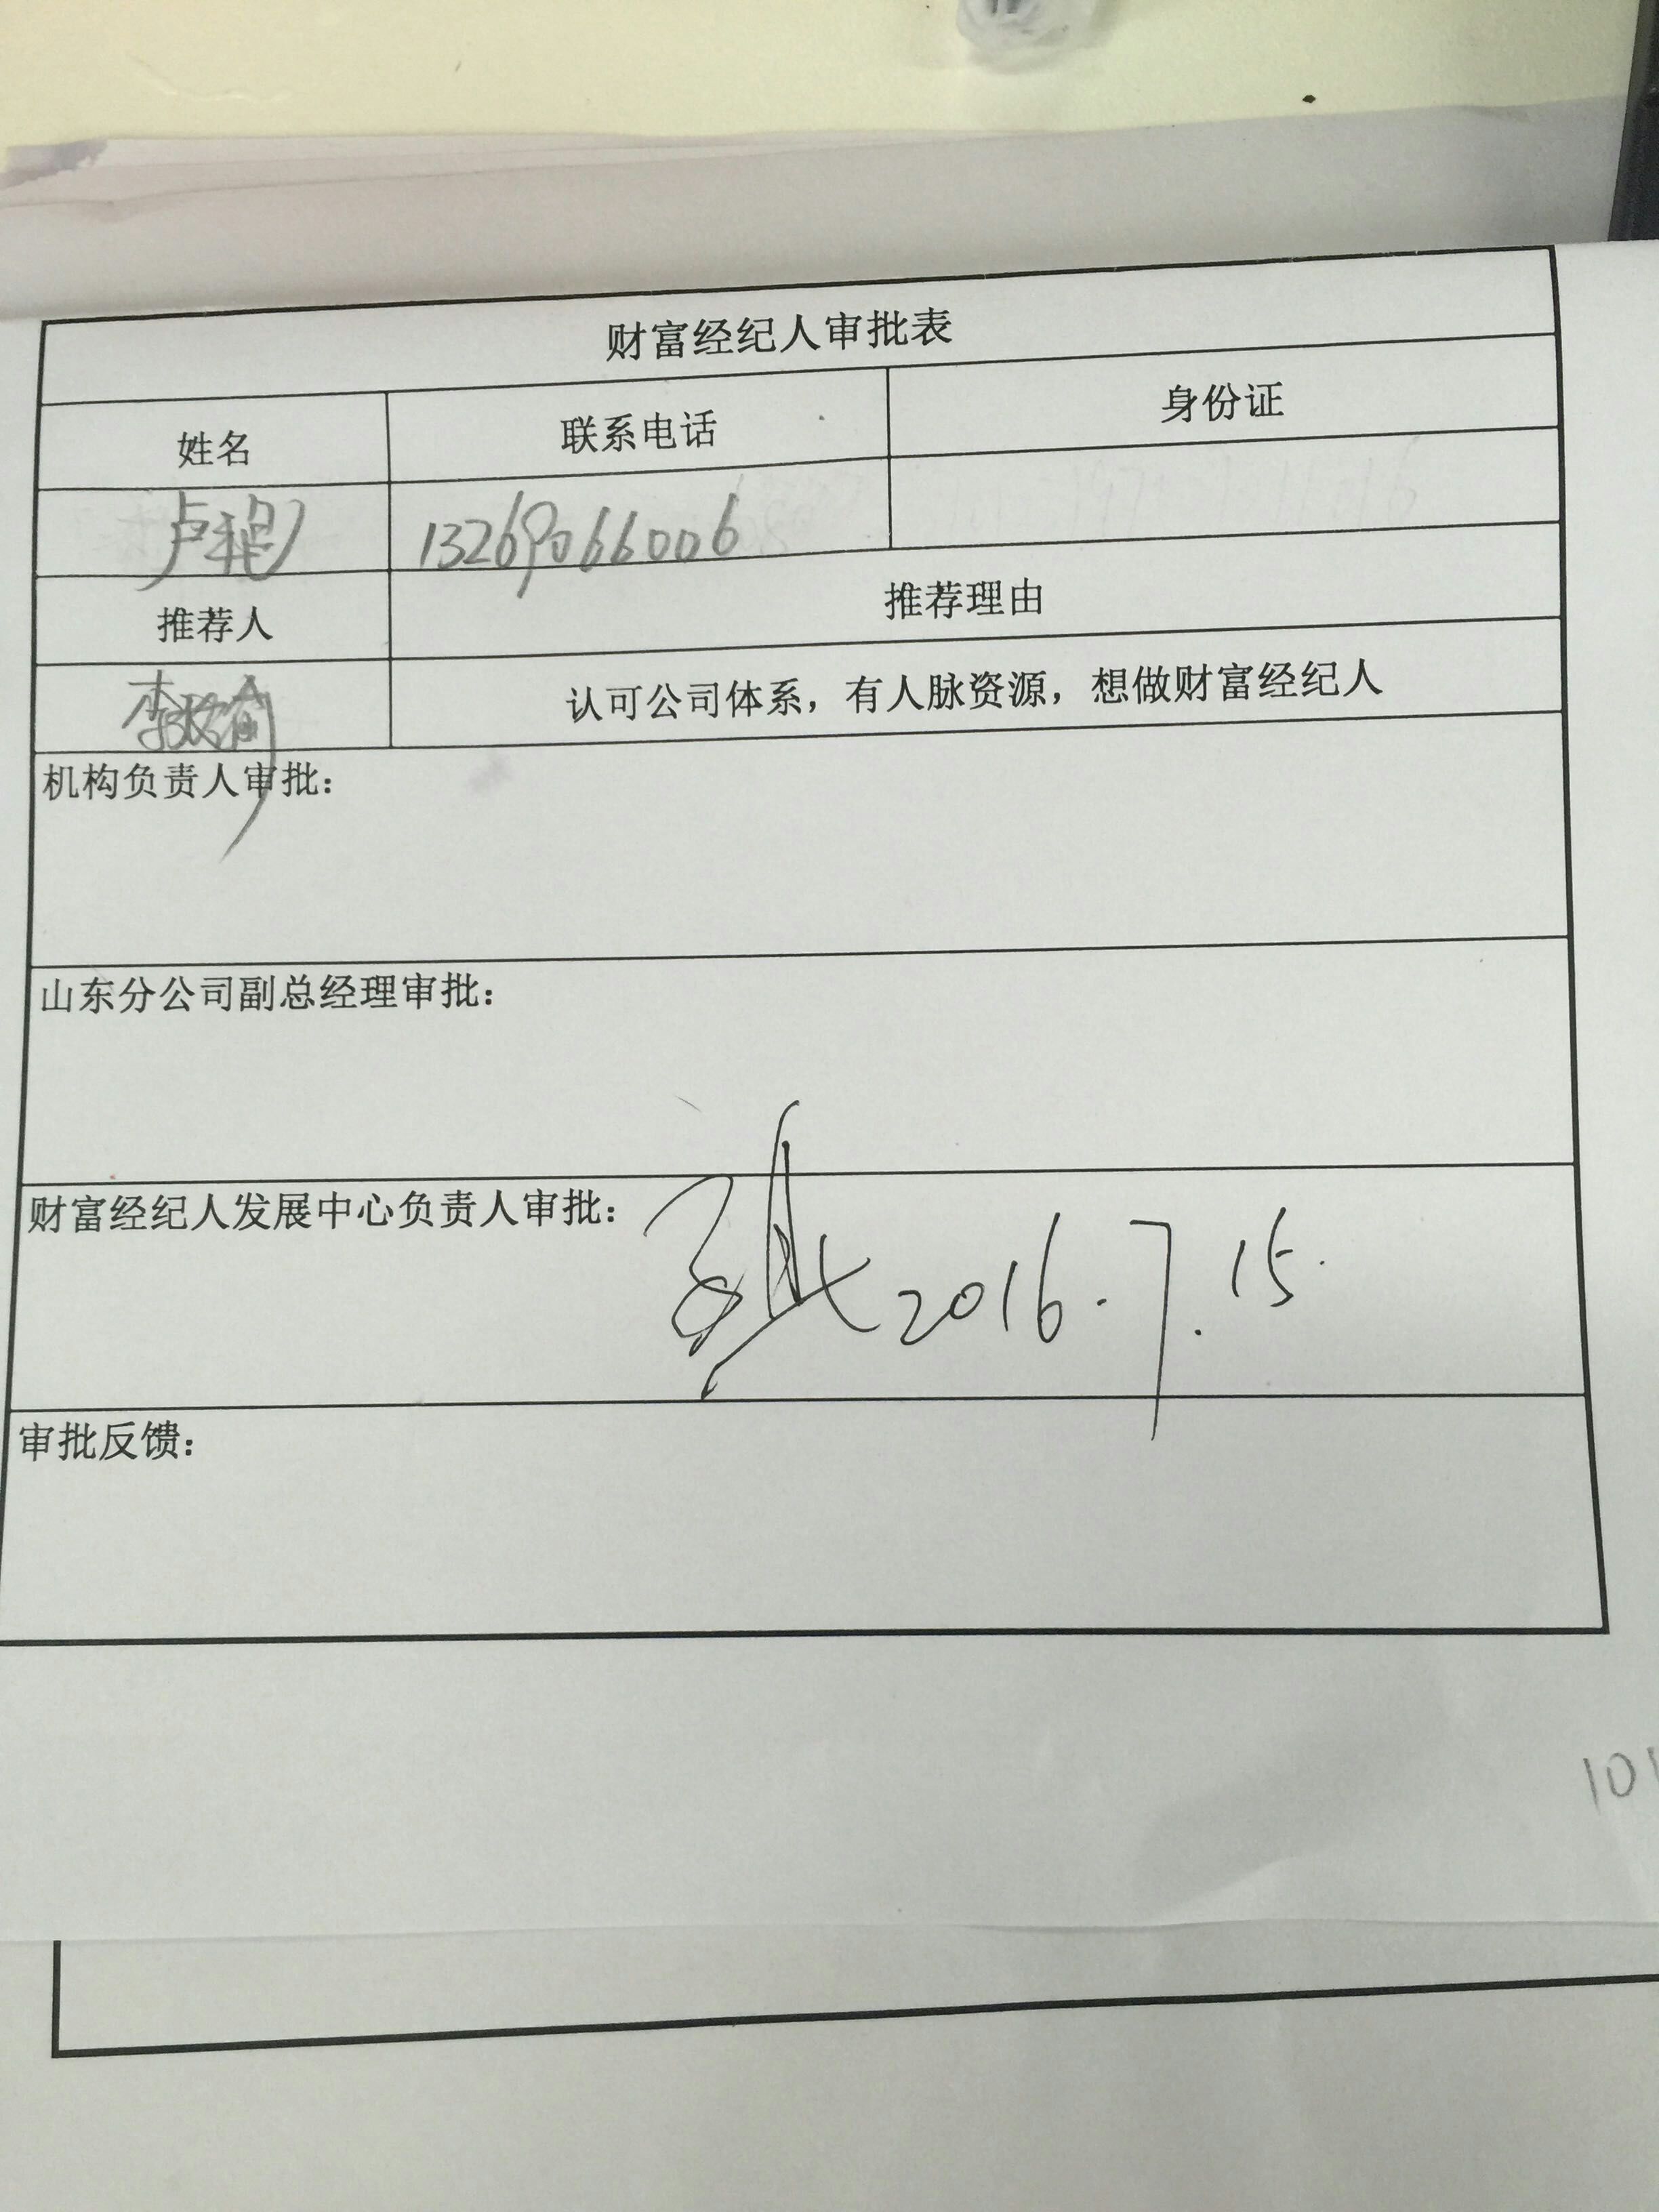 财富经纪人审批表
姓名 联系电话 身份证
卢 13269066006
推荐人 推荐理由
李 认可公司体系，有人脉资源，想做财富经纪人
机构负责人审批：
山东分公司副总经理审批：
财富经纪人发展中心负责人审批： 2016.7.15.
审批反馈：
101